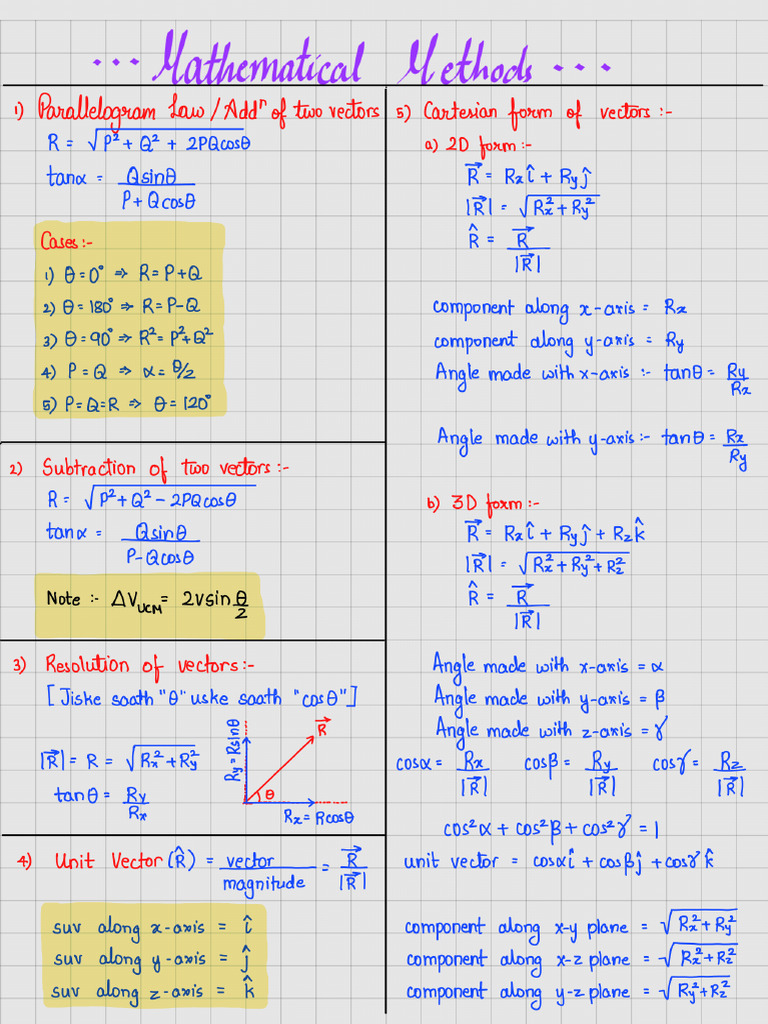 ... Mathematical Methods ...
1) Parallelogram Law / Addⁿ of two vectors
R = √(P² + Q² + 2PQcosθ)
tanα = Qsinθ / P+Qcosθ
Cases :-
1) θ = 0° ⇒ R = P+Q
2) θ = 180° ⇒ R = P-Q
3) θ = 90° ⇒ R² = P²+Q²
4) P = Q ⇒ α = θ/2
5) P = Q = R ⇒ θ = 120°
2) Subtraction of two vectors :-
R = √(P² + Q² - 2PQcosθ)
tanα = Qsinθ / P-Qcosθ
Note :- ΔV_UCM = 2vsin θ/2
3) Resolution of vectors :-
[ Jiske saath "θ" uske saath "cosθ" ]
|R⃗| = R = √(Rx² + Ry²)
tanθ = Ry / Rx
Ry = Rsinθ
R⃗
θ
Rx = Rcosθ
4) Unit Vector (R̂) = vector / magnitude = R⃗ / |R⃗|
suv along x-axis = î
suv along y-axis = ĵ
suv along z-axis = k̂
5) Cartesian form of vectors :-
a) 2D form :-
R⃗ = Rx î + Ry ĵ
|R⃗| = √(Rx² + Ry²)
R̂ = R⃗ / |R⃗|
component along x-axis = Rx
component along y-axis = Ry
Angle made with x-axis :- tanθ = Ry / Rx
Angle made with y-axis :- tanθ = Rx / Ry
b) 3D form :-
R⃗ = Rx î + Ry ĵ + Rz k̂
|R⃗| = √(Rx² + Ry² + Rz²)
R̂ = R⃗ / |R⃗|
Angle made with x-axis = α
Angle made with y-axis = β
Angle made with z-axis = γ
cosα = Rx / |R⃗| cosβ = Ry / |R⃗| cosγ = Rz / |R⃗|
cos²α + cos²β + cos²γ = 1
unit vector = cosα î + cosβ ĵ + cosγ k̂
component along x-y plane = √(Rx² + Ry²)
component along x-z plane = √(Rx² + Rz²)
component along y-z plane = √(Ry² + Rz²)